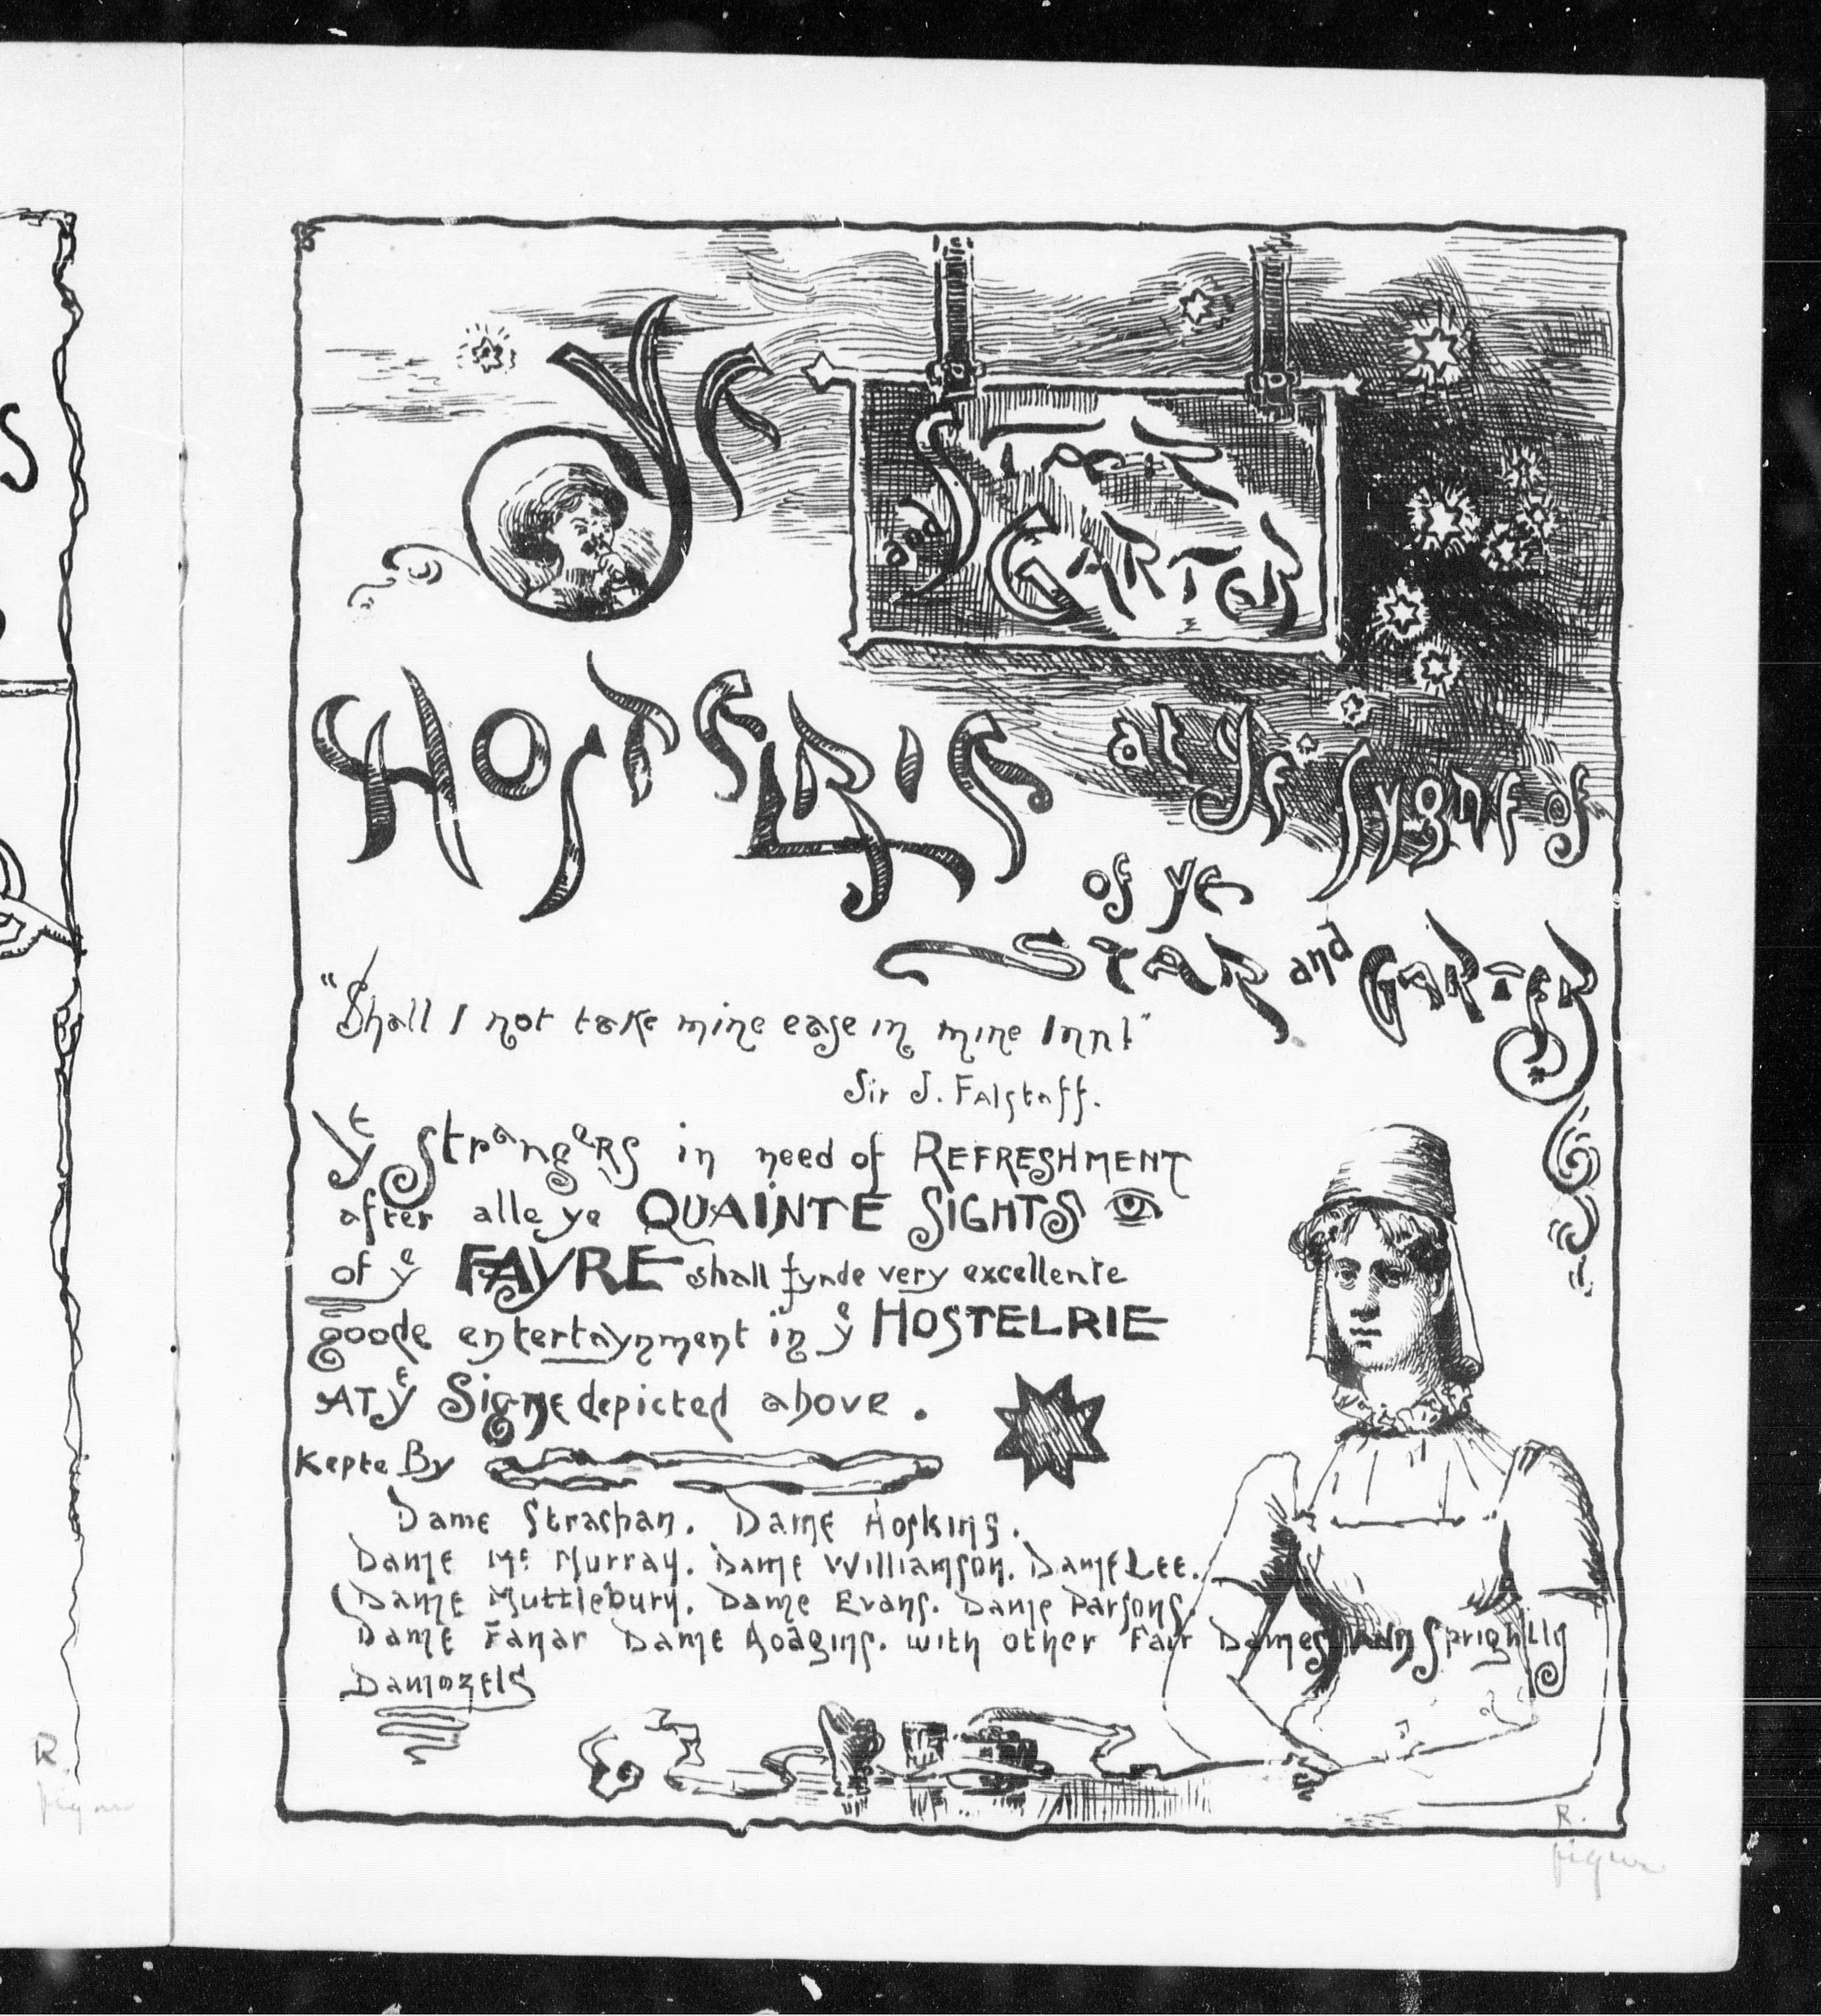 Ye
STAR
and GARTER
HOSTELRIE at Ye Sygne of
of ye
STAR and GARTER
"Shall I not take mine ease in mine Inn!"
Sir J. Falstaff.
Ye Strangers in need of REFRESHMENT
after alle ye QUAINTE SIGHTS
of ye FAYRE shall fynde very excellente
goode entertaynment in ye HOSTELRIE
AT ye Signe depicted above.
Kepte By
Dame Strachan. Dame Hoskins.
Dame Mc Murray. Dame Williamson. Dame Lee.
Dame Muttlebury. Dame Evans. Dame Parsons.
Dame Dame Hodgins. with other Fair Dames AND Sprightly
Damozels
R.
R.